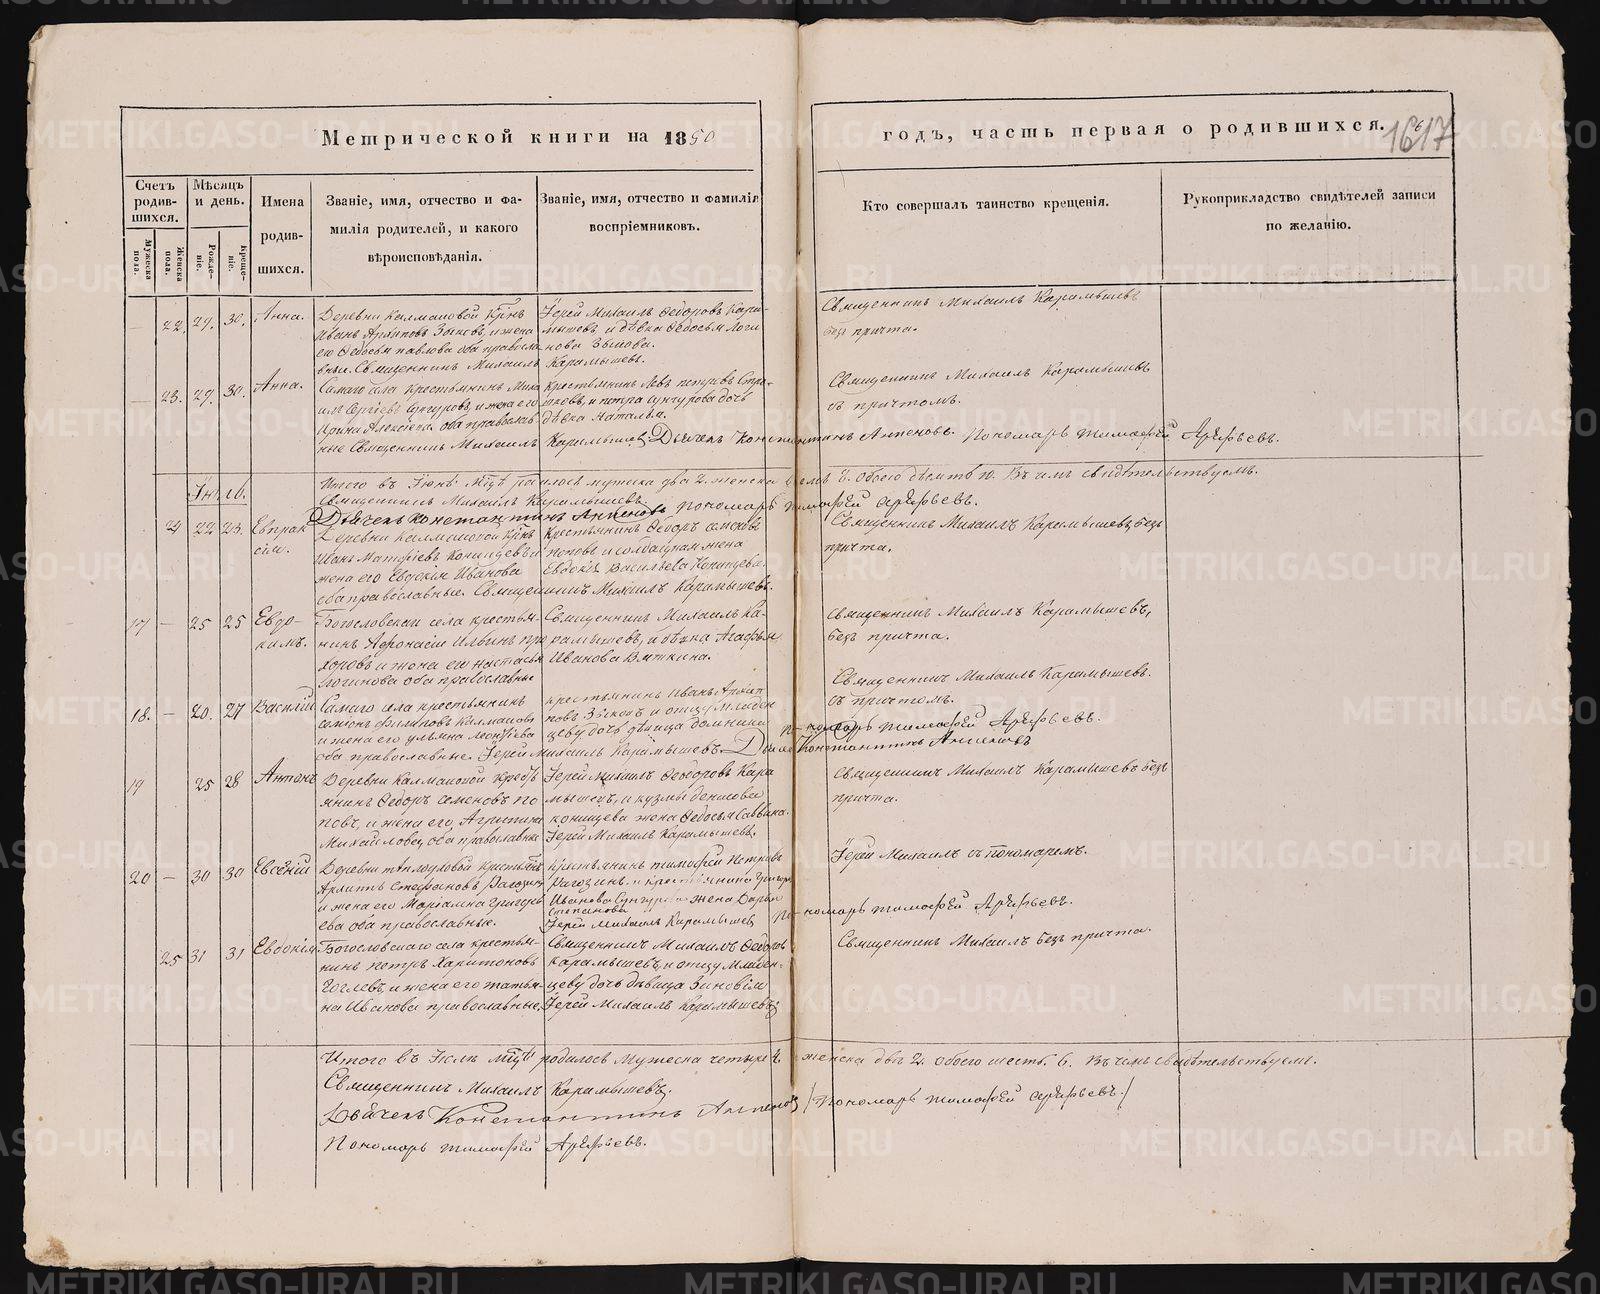 Метрической книги на 1850
годъ, часть первая о родившихся.
1617
Счетъ родив-шихся.
Мѣсяцъ и день.
Имена родив-шихся.
Званіе, имя, отчество и фа-
милія родителей, и какого
вѣроисповѣданія.
Званіе, имя, отчество и фамилія
воспріемниковъ.
Кто совершалъ таинство крещенія.
Рукоприкладство свидѣтелей записи
по желанію.
Мужеска пола.
Женска пола.
Рожде-ніе.
Креще-ніе.
— 22. 29. 30. Анна.
Деревни Калмаковой
Иванъ Архиповъ Зыковъ, и жена
его Федосья Павлова оба правосла
вные. Священникъ Михаилъ Карамышевъ.
Іерей Михаилъ Федоровъ Кара-
мышевъ и дѣвка Федосья Логи
нова Зыкова.
Священникъ Михаилъ Карамышевъ
безъ причта.
— 23. 29. 30. Анна.
Самаго села крестьянинъ Миха
илъ Сергіевъ Сунгуровъ, и жена его
Ирина Алексіева оба православ
ные Священникъ Михаилъ Карамышевъ Дьячекъ Константинъ Антоновъ. Пономарь Тимофей Арефьевъ.
крестьянинъ Левъ Петровъ
и Петра Сунгурова дочь
дѣвка Наталья.
Священникъ Михаилъ Карамышевъ
съ причтомъ.
Итого въ Іюнѣ родилось мужеска два 2. женска обоего В чемъ свидѣтельствуемъ.
Священникъ Михаилъ Карамышевъ.
Дьячекъ Константинъ Антоновъ Пономарь Тимофей Арефьевъ.
Іюль.
24 22 23. Евпрак
сія.
Деревни Калмаковой
Иванъ Матфіевъ Конищевъ и
жена его Евдокія Иванова
оба православные. Священникъ Михаилъ Карамышевъ.
Крестьянинъ Федоръ Семеновъ
Поповъ и жена
Евдокія Васильева Конищева.
Священникъ Михаилъ Карамышевъ безъ
причта.
17 — 25 25 Евдо-
кимъ.
Богословскаго села крестья-
нинъ Афонасій Ильинъ Про
хоровъ и жена его Настасья
Логинова оба православные
Священникъ Михаилъ Ка-
рамышевъ, и дѣвка Агафья
Иванова Вяткина.
Священникъ Михаилъ Карамышевъ,
безъ причта.
18. — 20. 27 Василій
Самаго села крестьянинъ
Семіонъ Филиповъ Калмаковъ
и жена его Ульяна Леонтіева
оба православные. Іерей Михаилъ Карамышевъ. Дьячекъ Константинъ Антоновъ
крестьянинъ Иванъ Архип
повъ Зыковъ и отцу младен
цеву дочь дѣвица Домнина
Священникъ Михаилъ Карамышевъ.
съ причтомъ.
Пономарь Тимофей Арефьевъ.
19 — 25 28 Антонъ
Деревни Калмаковой Кресть
янинъ Федоръ Семеновъ По
повъ, и жена его, Агрипина
Михайлова, оба православные
Іерей Михаилъ Феодоровъ Кара
мышевъ, и Кузмы Денисова
Конищева жена Федосья Саввина.
Іерей Михаилъ Карамышевъ.
Священникъ Михаилъ Карамышевъ безъ
причта.
20 — 30 30 Евсевій
Стефановъ Рагозинъ
и жена его Маріамна Григорь
ева оба православные.
крестьянинъ Тимофей Петровъ
Рагозинъ. и крестьянина Григорія
Иванова Сунгурова жена Дарья
Степанова
Іерей Михаилъ Карамышевъ
Іерей Михаилъ съ пономаремъ.
Пономарь Тимофей Арефьевъ.
25 31 31 Евдокія
Богословскаго села крестья-
нинъ Петръ Харитоновъ
Гоглевъ, и жена его Татья-
на Иванова православные,
Священникъ Михаилъ Федоровъ
Карамышевъ, и отцу младен-
цеву дочь дѣвица Зиновія
Іерей Михаилъ Карамышевъ
Священникъ Михаилъ безъ причта.
Итого въ Іюлѣ мцѣ родилось мужеска четыре 4. женска двѣ 2. обоего шесть 6. Въ чемъ свидѣтельствуемъ.
Священникъ Михаилъ Карамышевъ.
Дьячекъ Константинъ Антоновъ /Пономарь Тимофей Арефьевъ./
Пономарь Тимофей Арефьевъ.
METRIKI.GASO-URAL.RU